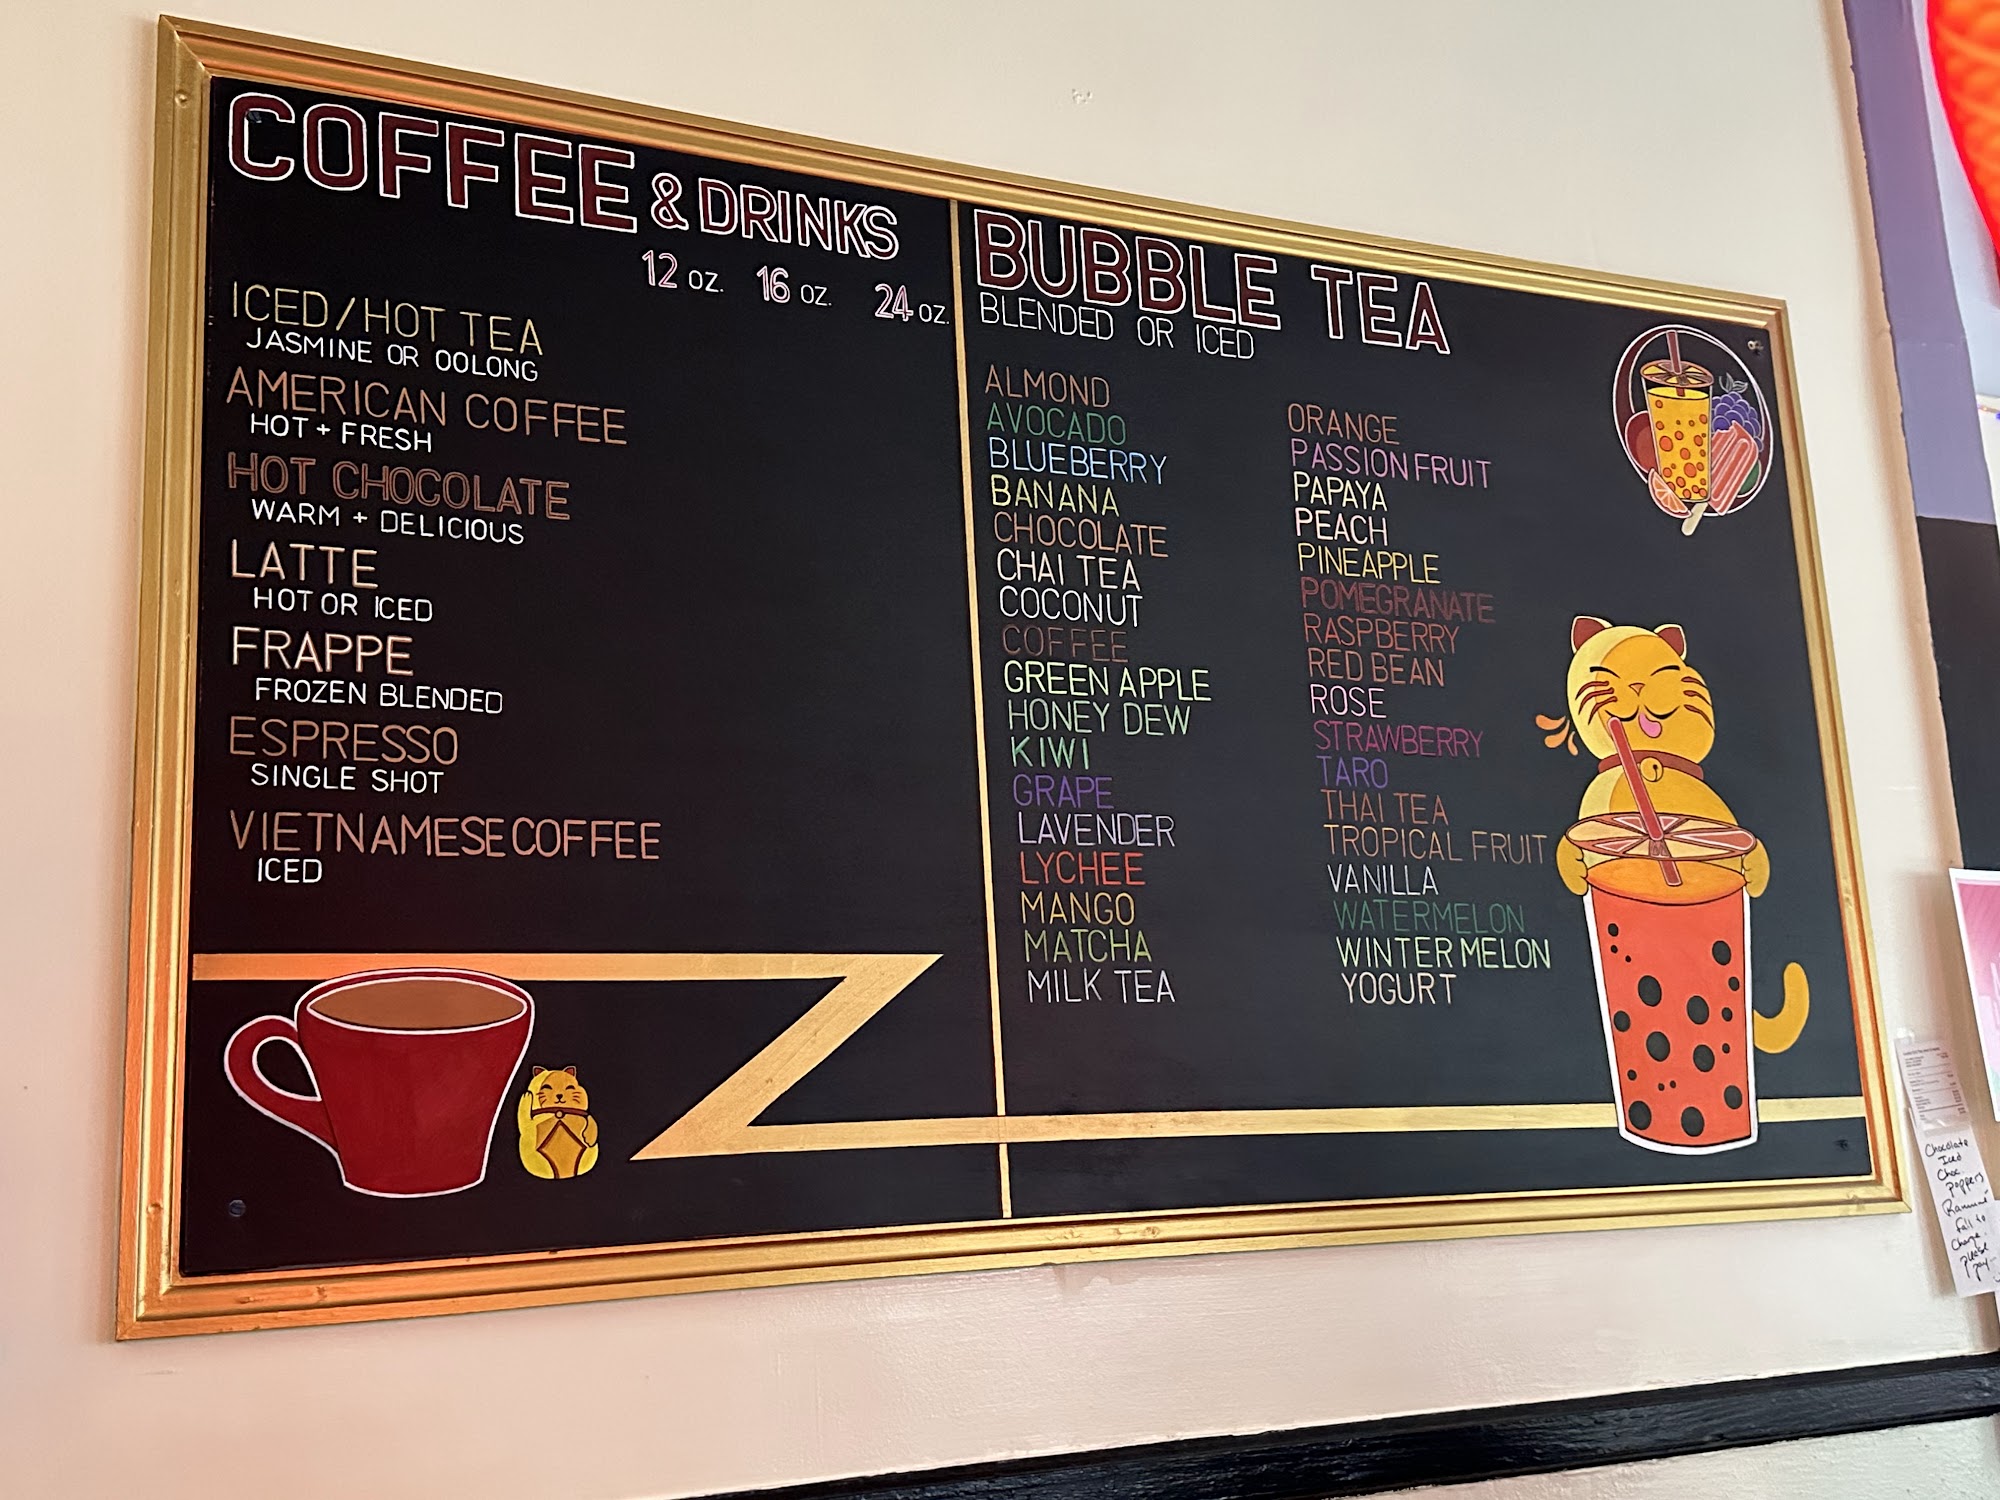 COFFEE & DRINKS
12 OZ. 16 OZ. 24 OZ.
ICED/HOT TEA
JASMINE OR OOLONG
AMERICAN COFFEE
HOT + FRESH
HOT CHOCOLATE
WARM + DELICIOUS
LATTE
HOT OR ICED
FRAPPE
FROZEN BLENDED
ESPRESSO
SINGLE SHOT
VIETNAMESE COFFEE
ICED
BUBBLE TEA
BLENDED OR ICED
ALMOND
AVOCADO
BLUEBERRY
BANANA
CHOCOLATE
CHAI TEA
COCONUT
COFFEE
GREEN APPLE
HONEY DEW
KIWI
GRAPE
LAVENDER
LYCHEE
MANGO
MATCHA
MILK TEA
ORANGE
PASSION FRUIT
PAPAYA
PEACH
PINEAPPLE
POMEGRANATE
RASPBERRY
RED BEAN
ROSE
STRAWBERRY
TARO
THAI TEA
TROPICAL FRUIT
VANILLA
WATERMELON
WINTER MELON
YOGURT
Chocolate
Iced
Choc.
poppers